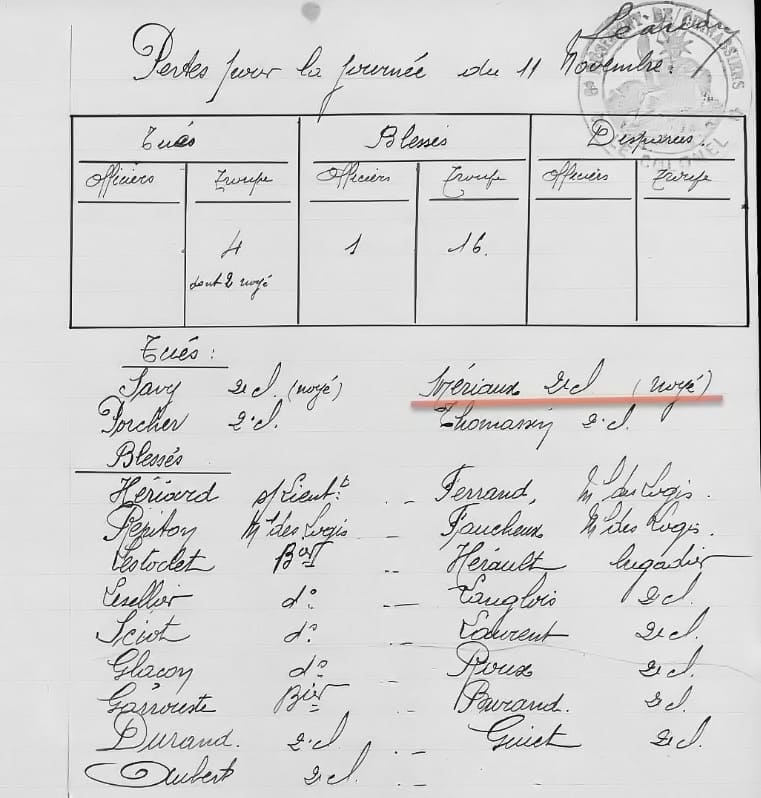 Pertes pour la journée du 11 Novembre :
6e REGIMENT DE CUIRASSIERS
LE COLONEL
Tués Blessés Disparus.
Officiers Troupe Officiers Troupe Officiers Troupe
4 1 16.
dont 2 noyé
Tués :
Savy 2e cl. (noyé) Mériaux 2e cl (noyé)
Porcher 2e cl. Thomassin 2e cl.
Blessés
Hériard s/Lieut.t - Ferrand, Mal des Logis.
Répiton Mal des Logis - Faucheux Mal des Logis.
Lestoclet Bier - Hérault brigadier
Lesellier do - Langlois 2e cl.
Sciot do - Laurent 2e cl.
Glacon do - Roux 2e cl.
Garrouste Bier - Burand. 2e cl.
Durand. 2e cl. - Guict 2e cl.
Aubert 2e cl. -